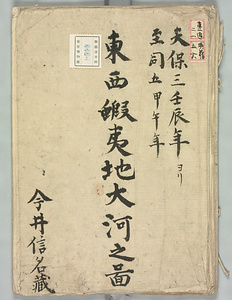 天保三壬辰年ヨリ
至同五甲午年
東西蝦夷地大河之圖
今井信名藏